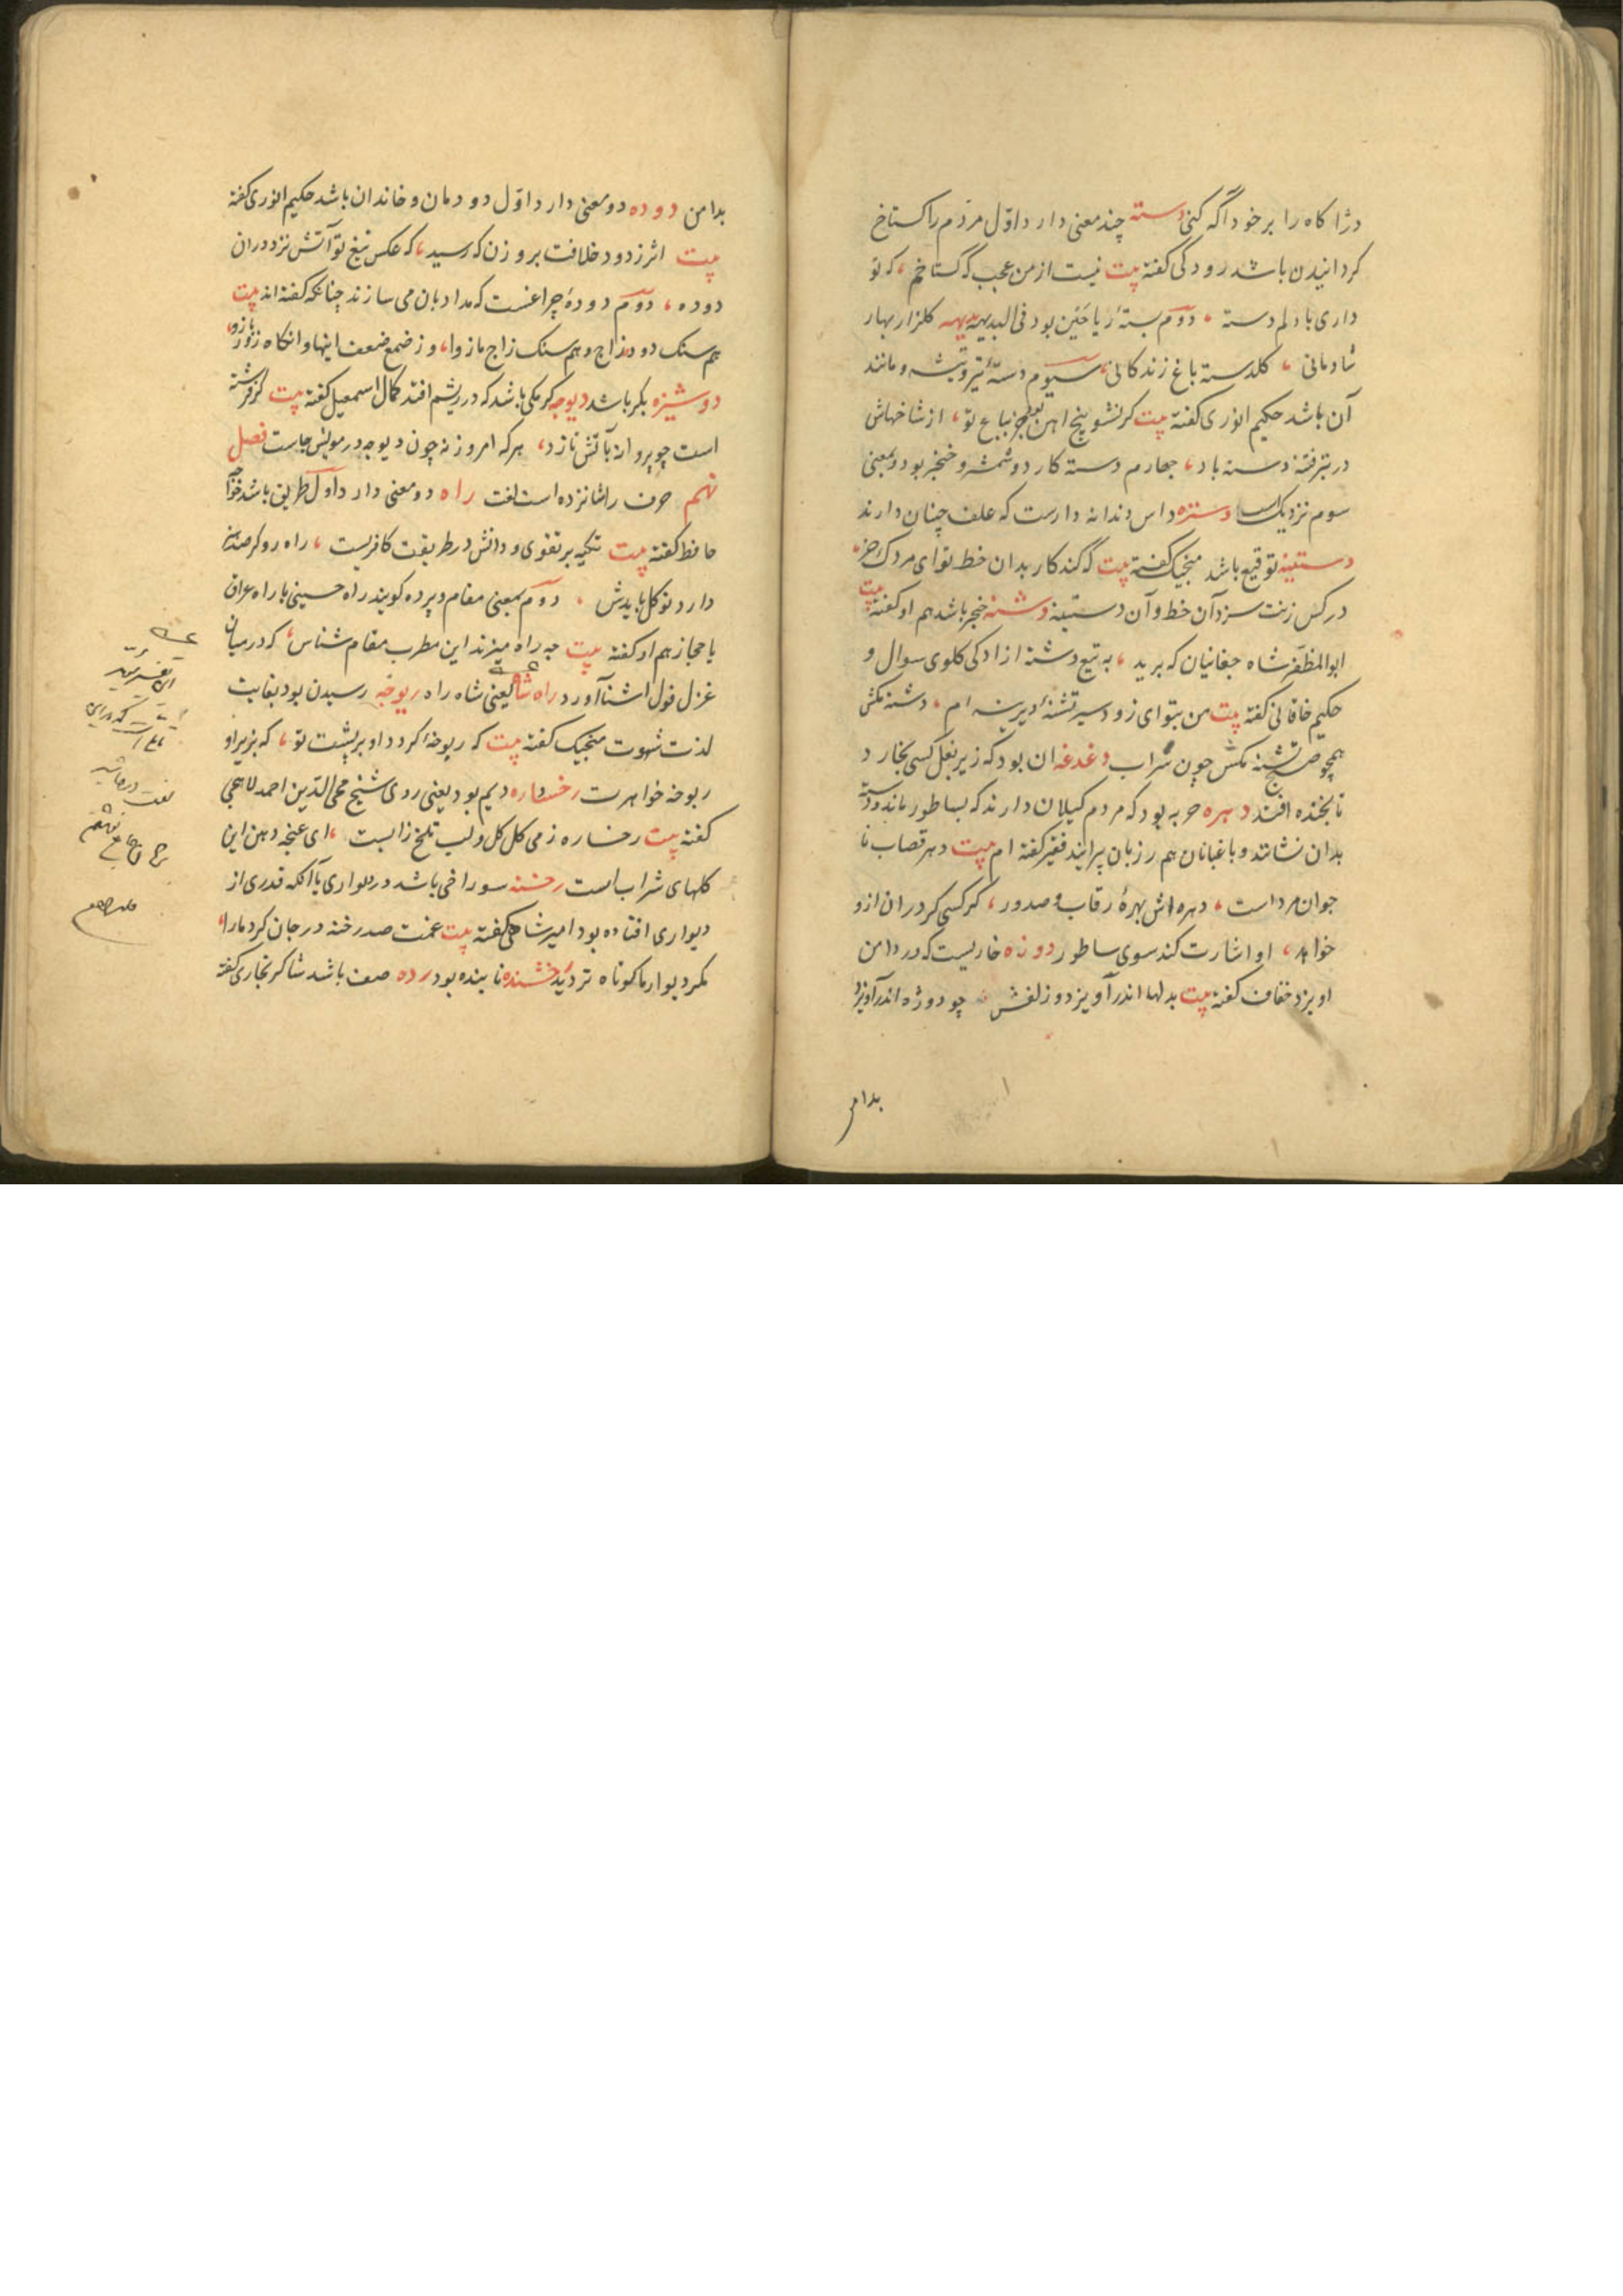 درا کاه را بر خود آگه کنی دسته چند معنی دارد اوّل مردم را کستاخ
کردانیدن باشد رودکی کفته بیت نیست از من عجب که گستاخم که تو
داری بادلم دسته دوّم بستهٔ ریاحین بود فی البدیهه کلزار بهار
شادمانی کلدسته باغ زندکانی سیوم دستهٔ تیر و تیشه و مانند
آن باشد حکیم انوری کفته بیت از شاخهاش
فتنه دسته باد چهارم دسته کارد و شمشه و خنجر بود و بمعنی
سوم نزدیک است دستره داس دندانه دارست که علف چنان دارند
دستینه توقیع باشد منجیک کفته بیت که کند کار بدان خط تو ای مردک
سزد آن خط و آن دستینه دشنه خنجر باشد هم او کفته بیت
ابوالمظفر شاه چغانیان که برید به تیغ دشنه ازادکی کلوی سوال و
حکیم خاقانی کفته بیت من بتو ای زود سیر تشنهٔ دیرینه ام دشنه مکش
همچو صبح تشنه مکش چون سراب دغدغه ان بود که زیر بغل کسی بخارد
تا بخنده افتد دهره حربه بود که مردم کیلان دارند که بساطور ماند و دسته
بدان نشانند و باغبانان هم رزبان پیرایند فقیر کفته ام بیت دهر قصاب نا
جوان مرد است دهره اش بهرهٔ رقاب و صدور کر کسی کردران ازو
خواهد او اشارت کند سوی ساطور دوزه خاریست که در دامن
اویزد خفاف کفته بیت بدلها اندر آویزد دو زلفش چو دوژه اندر آویزد
بدامن
بدامن دوده دو معنی دارد اوّل دودمان و خاندان باشد حکیم انوری کفته
بیت اثر ز دود خلافت بروزن که رسید که عکس تیغ تو آتش نزد دران
دوده دوّم دودهٔ چراغست که مداد بان می سازند چنانکه کفته اند بیت
هم سنک دوده زاج و هم سنک زاج مازو از صمغ ضعف اینها وانکاه زور بازو
دوشیزه بکر باشد دیوجه کرمکی باشد که در ریشم افتد کمال اسمعیل کفته بیت
است چو پروانه بآتش نازد هرکه امروز نه چون دیوجه در مویش جاست فصل
نهم حرف را شانزده است لغت راه دو معنی دارد اوّل طریق باشد خواجه
حافظ کفته بیت تکیه بر تقوی و دانش در طریقت کافریست راه رو کر صد هنر
دارد توکل بایدش دوّم بمعنی مقام و پرده کویند راه حسینی یا راه عراق
یا حجاز هم او کفته بیت چه راه میزند این مطرب مقام شناس که در میان
غزل قول اشنا آورد راه شاه یعنی شاه راه ربوخه رسیدن بود بغایت
لذت شهوت منجیک کفته بیت که ربوخه کردد او بر پشت تو که بزیر او
ربوخه خواهرت رخساره دیم بود یعنی روی شیخ محی الدّین احمد لاهجی
کفته بیت رخساره ز می کل کل و لب تلخ زا لبست ای غنچه دهن این
کلهای شراب است رخنه سوراخی باشد در دیواری یا آنکه قدری از
دیواری افتاده بود امیر شاهی کفته بیت غمت صد رخنه در جان کرد مارا
مکر دیوار ما کوتاه تر دید رخشنده تابنده بود رده صف باشد شاکر بخاری کفته